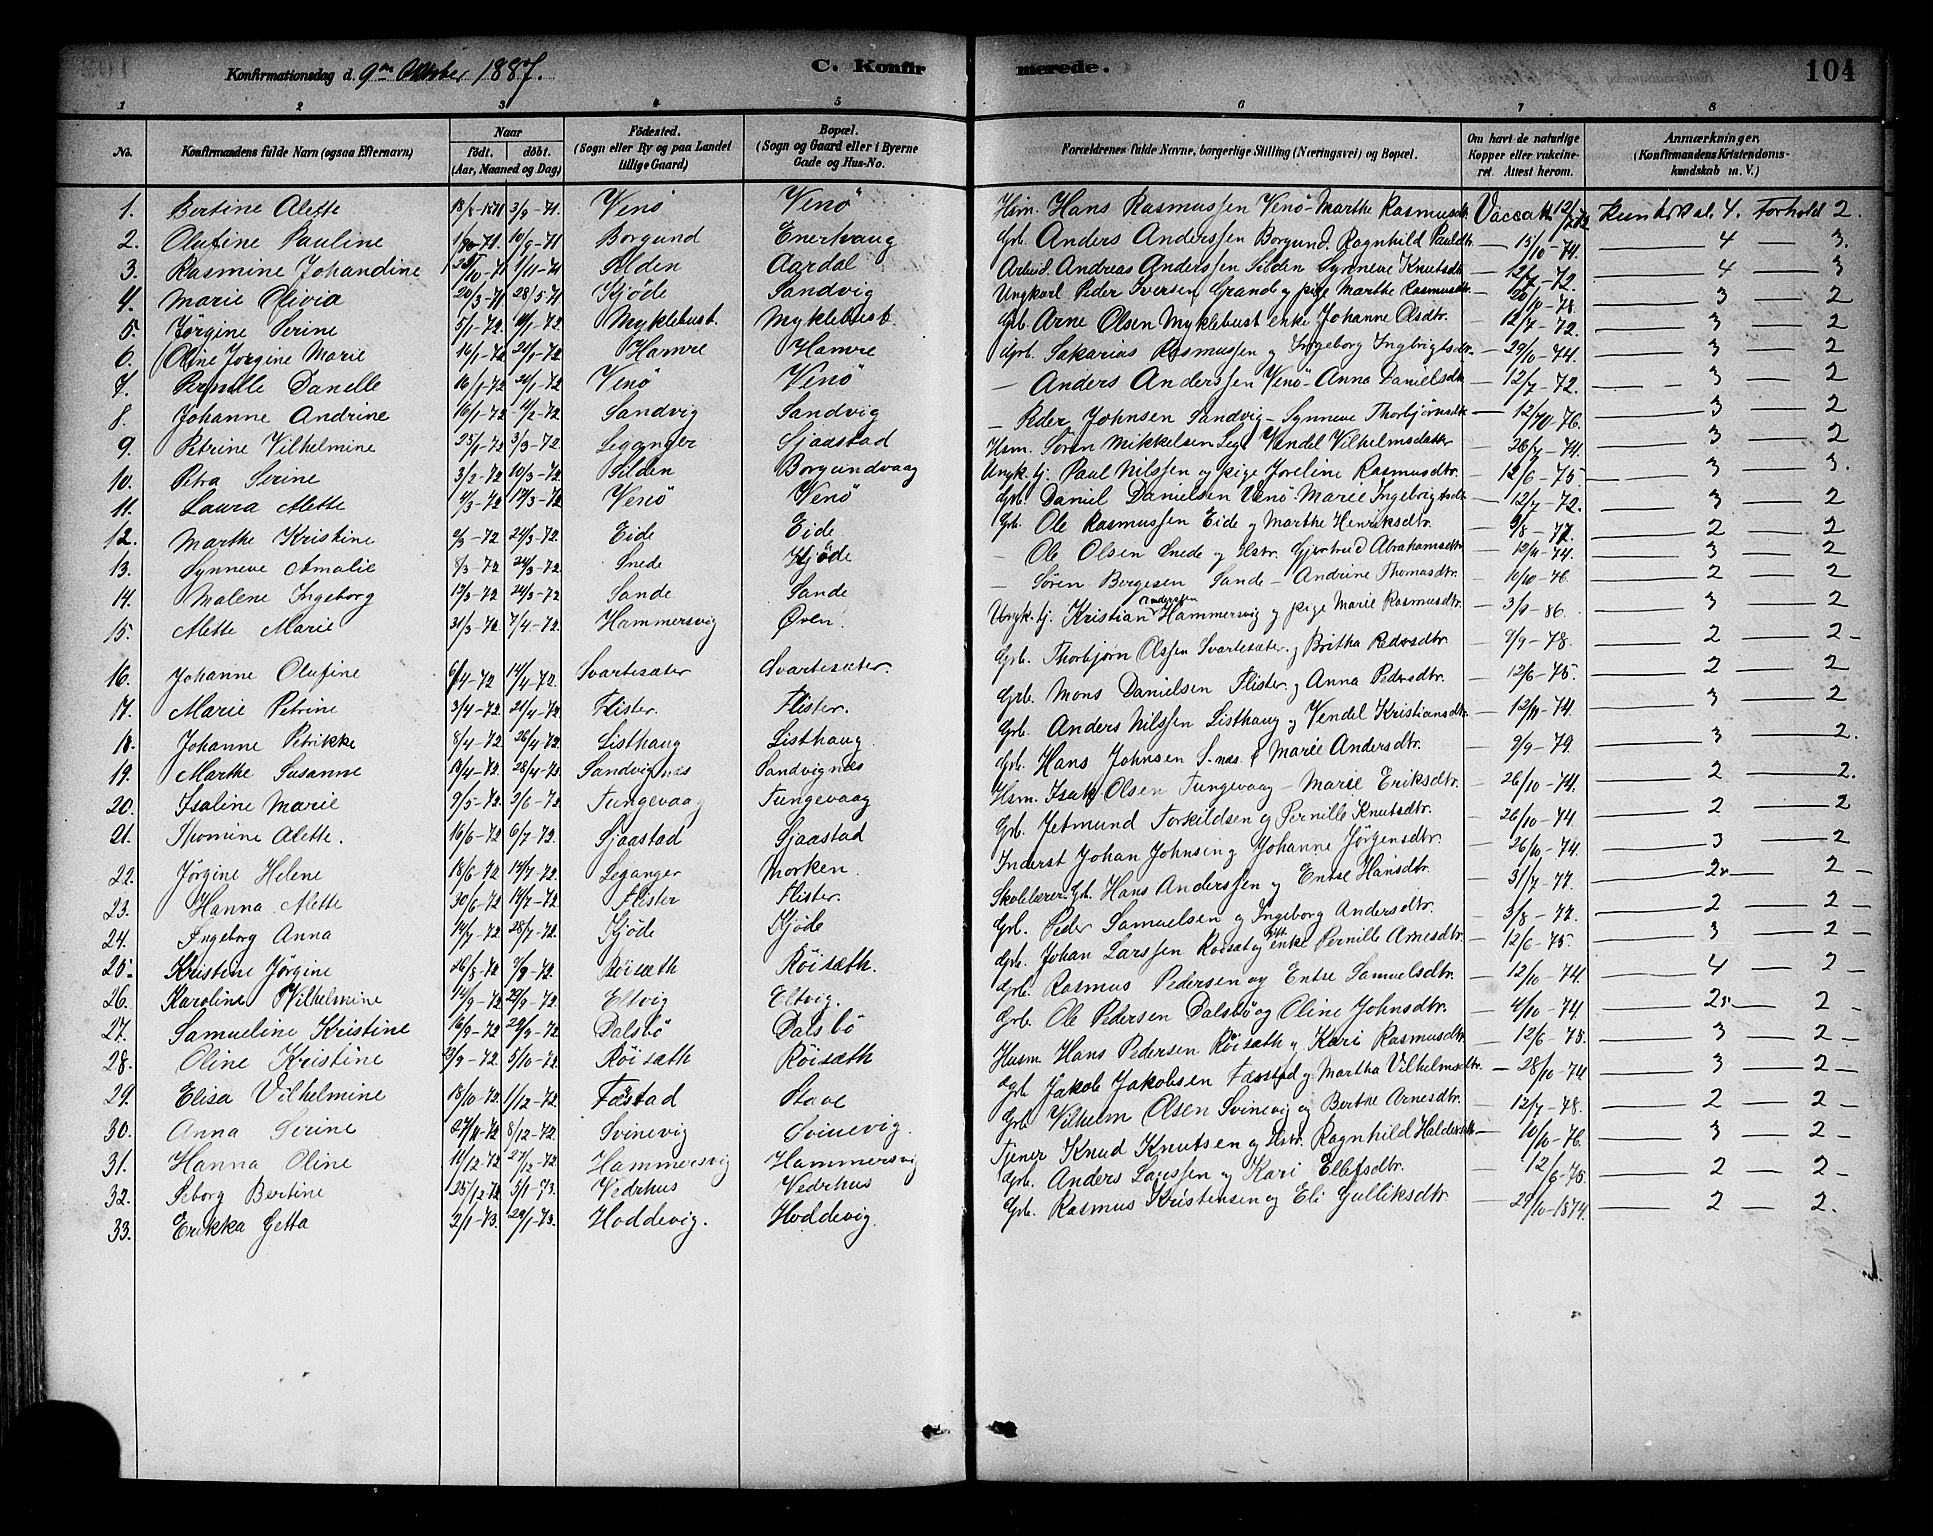 Konfirmationsdag d. 9de Oktober 1887. C. Konfirmerede. 104
1 2 3 4 5 6 7 8
No. Konfirmandens fulde Navn (ogsaa Efternavn) Naar födt. döbt. (Aar, Maaned og Dag) Födested. (Sogn eller By og paa Landet tillige Gaard) Bopæl. (Sogn og Gaard eller i Byerne Gade og Hus-No. Forældrenes fulde Navne, borgerlige Stilling (Næringsvei) og Bopæl. Om havt de naturlige Kopper eller vakcineret. Attest herom. Anmærkninger, (Konfirmandens Kristendomskundskab m. V.)
1. Bertine Alette 18/8-1871 3/9-71. Venö Venö Hsm. Hans Rasmussen Venö-Marthe Rasmusdtr. 4. Forhold 2.
2. Olufine Pauline 10/9-71 Borgund Enerhaug Grb. Anders Anderssen Borgund. Ragnhild Paulsdtr. — 15/10-74. — 4 — 3.
3. Rasmine Johandine 1/11-71 Silden Aardal Arbeid. Andreas Anderssen Silden Synneve Knutsdtr. — 12/7-72. — 4 — 3
4. Marie Olivia 20/3-71 28/5-71 Kjöde Sandvig Ungkarl Peder Iversen Grand og pige Marthe Rasmusdtr. — 20/10-78. — 3 — 2
5. Jörgine Serine 5/1-72. 14/1-72. Myklebust. Myklebust. Grb. Arne Olsen Myklebust enke Johanne Olsdtr. — 12/7-72. — 3 — 2
6. Oline Jörgine Marie 16/1-72 21/1-72. Hamre Hamre Grb. Sakarias Rasmussen og Ingeborg Ingbrigtsdtr. — 29/10-74. — 3 — 2
7. Pernille Danelle 16/1-72 21/1-72 Venö Venö — Anders Anderssen Venö-Anna Danielsdtr. — 12/7-72. — 3 — 2
8. Johanne Andrine 16/1-72 11/2-72 Sandvig Sandvig — Peder Johnsen Sandvig-Synneve Thorbjörnsdtr. — 12/10-76. — 3 — 2
9. Petrine Vilhelmine 25/1-72 3/3-72. Leganger Sjaastad Hsm. Sören Mikkelsen Leg. Vendel Vilhelmsdatter — 26/7-74. — 3 — 2
10. Petra Serine 3/2-72 10/3-72. Silden Borgundvaag Ungk. tj. Paul Nilssen og pige Joreline Rasmusdtr. — 12/6-75. — 3 — 3.
11. Laura Alette 4/3-72 17/3-72 Venö Venö Grb. Daniel Danielsen Venö-Marie Ingebrigtsdtr. — 12/7-72. — 3 — 2
12. Marthe Kristine 9/3-72 24/3-72. Eide Eide Grb. Ole Rasmussen Eide og Marthe Henriksdtr. — 9/8-77. — 2 — 2
13. Synneve Amalie 8/3-72 24/3-72. Snede Kjöde — Ole Olsen Snede og Hstr. Gjertrud Abrahamsdtr. — 12/11-74. — 3 — 2
14. Malene Ingeborg 13/3-72 24/3-72. Sande Sande — Sören Börgesen Sande-Andrine Thomasdtr. — 10/10-76. — 2 — 2
15. Alette Marie 31/3-72 7/4-72. Hammersvig Øven. Ungk. tj. Kristian Anderssen Hammersvig og pige Marie Rasmusdtr. — 3/9-86. — 3 — 2
16. Johanne Olufine 6/4-72 14/4-72. Svartesæter Svartesæter. Grb. Thorbjörn Olssen Svartesæter. og Britha Pedersdtr. — 9/9-78. — 2 — 2-
17. Marie Petrine 3/4-72. 21/4-72. Flister. Flister. Grb. Mons Danielsen Flister og Anna Pedersdtr. — 12/6-75. — 2 — 2
18. Johanne Petrikke 8/4-72. 26/4-72. Listhaug Listhaug. Grb. Anders Nilssen Listhaug og Vendel Kristiansdtr. — 12/11-74. — 3 — 2
19. Marthe Susanne 14/4-72. 28/4-72 Sandvignæs Sandvignæs Grb. Hans Johnsen S.næs. & Marie Andersdtr. — 9/9-79. — 3 — 2.
20. Isaline Marie 9/5-72. 2/6-72. Tungevaag Tungevaag Hsm. Isak Olsen Tungevaag — Marie Eriksdtr. — 26/10-74. — 2 — 2.
21. Thomine Alette. 16/6-72 6/7-72. Sjaastad Sjaastad Grb. Jetmund Torkildsen og Pernille Knutsdtr. — 26/10-74 — 2 — 2
22. Jörgine Helene 18/6-72 14/7-72. Leganger Morken. Inderst Johan Johnsen og Johanne Jörgensdtr. — 26/10-74. — 3 — 2
23. Hanna Alette 30/6-72 14/7-72. Flister Flister. Skolelærer. Grb. Hans Anderssen og Entse Hansdtr. — 31/7-77. — 2 — 2 -
24. Ingeborg Anna 14/7-72 28/7-72. Kjöde Kjöde Grb. Peder Samuelsen og Ingeborg Andersdtr. — 3/8-77. — 2 — 2 -
25. Kristine Jörgine 26/8-72 Röisæth Röisæth. Grb. Johan Larssen Röisæt enke Pernille Arnesdtr. — 12/6-75. — 3 — 2 -
26. Karoline Vilhelmine 14/9-72 29/9-72. Eltvig Eltvig. Grb. Rasmus Pedersen og Entse Samuelsdtr. — 12/10-74. — 4 — 2 -
27. Samueline Kristine 16/9-72 29/9-72. Dalsbö Dalsbö Grb. Ole Pedersen Dalsbö og Oline Johnsdtr. — 4/10-74. — 2 — 2 -
28. Oline Kristine 5/10-72. Röisæth Röisæth Husm. Hans Pedersen Röisæth og Kari Rasmusdtr. — 12/6-78. — 3 — 2 -
29. Elisa Vilhelmine 18/10-72. 1/12-72. Fæstad Stave Grb. Jakob Jakobsen Fæstad og Martha Vilhelmsdtr. — 28/10-74 — 3 — 2 -
30. Anna Serine 27/11-72 8/12-72. Svinevig Svinevig. Grb. Vilhelm Olsen Svinevig og Berthe Arnesdtr. — 12/7-78. — 2 — 2 -
31. Hanna Oline 27/12-72. Hammersvig Hammersvig Tjener Knud Knutsen og Hstr. Ragnhild — 10/10-76. — 3 — 2 -
32. Seborg Bertine 25/12-72 5/1-73. Vedrhus Vedrhus Grb. Anders Larssen og Kari Ellefsdtr. — 12/6-75. — 2 — 2 -
33. Erikka Getta 2/1-73. 29/1-73. Hoddevig. Hoddevig. Grb. Rasmus Kristensen og Eli Gulliksdtr — 29/10-1874. — 2 — 2.